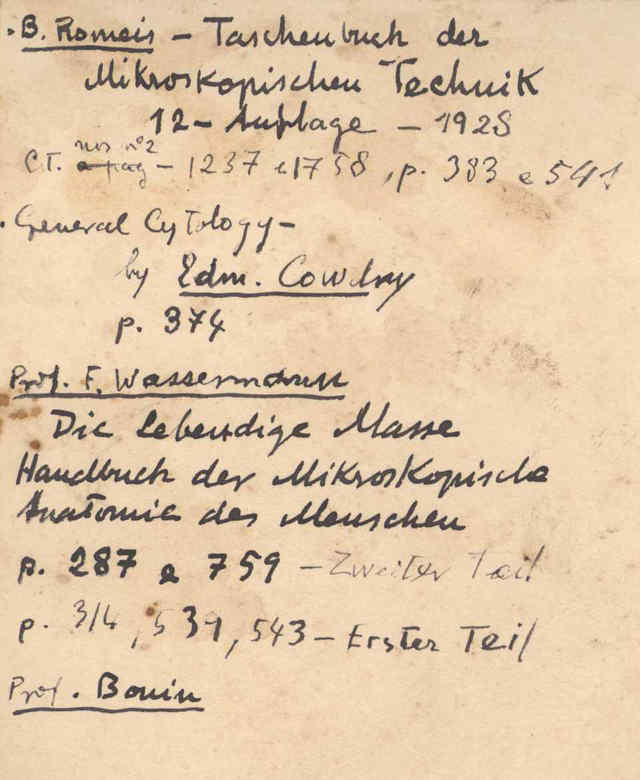 . B. Romeis – Taschenbuch der
Mikroskopischen Technik
12 – Auflage – 1928
C.T. nos nº2 – 1237 e 1758, p. 383 e 541
. General Cytology –
by Edm. Cowdry
p. 374
Prof. F. Wassermann
Die lebendige Masse
Handbuch der Mikroskopische
Anatomie des Menschen
p. 287 e 759 – Zweiter Teil
p. 314, 539, 543 – Erster Teil
Prof. Bouin